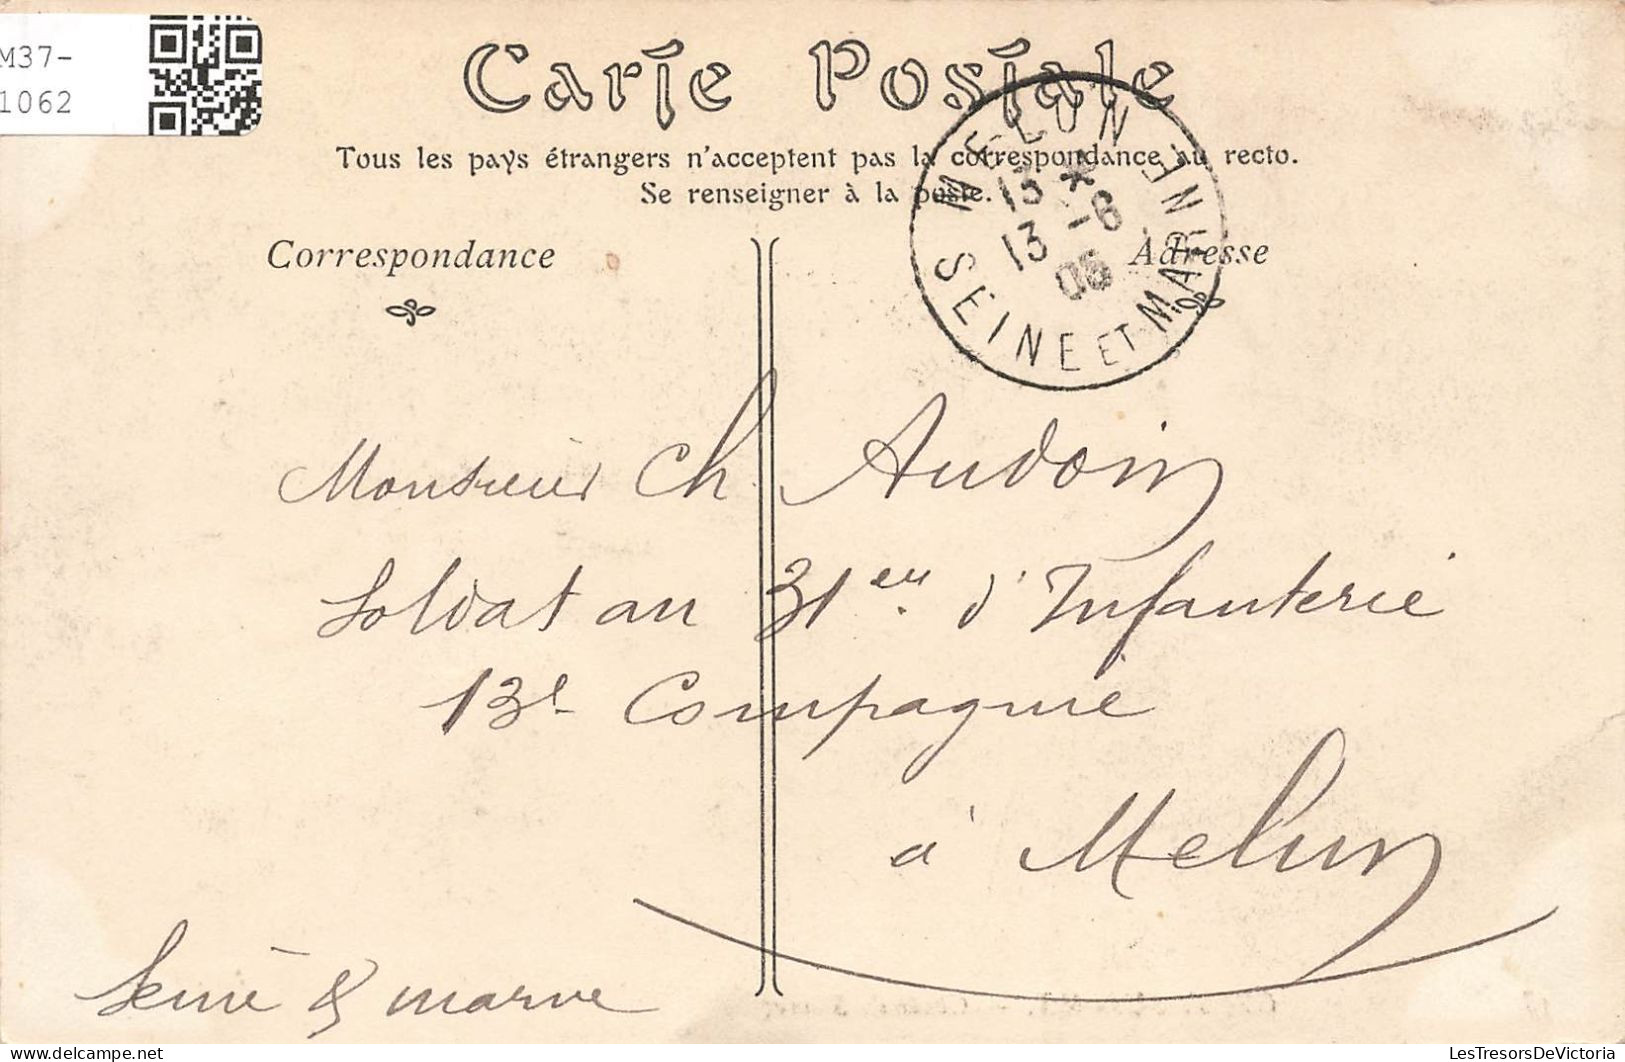 M37-
1062
Carte Postale
Tous les pays étrangers n'acceptent pas la correspondance au recto.
Se renseigner à la poste.
MELUN
13 *
13 -6
05
SEINE ET MARNE
Correspondance
Adresse
Monsieur Ch Audoin
Soldat au 31em d'Infanterie
13e Compagnie
à Melun
Seine & marne
LesTresorsDeVictoria